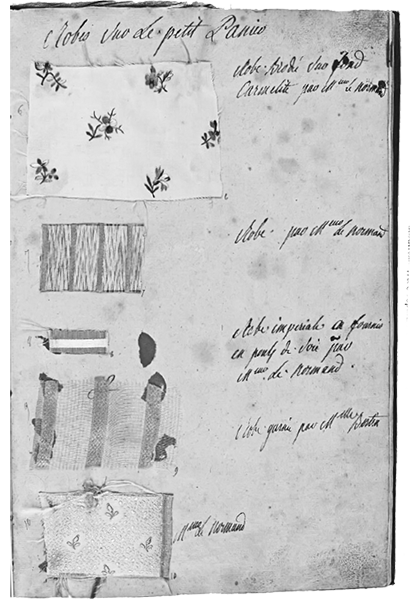 Robes Sur Le petit Panier
Robe brodée Sur fond
Carmelite par Mme le normand
6
Robe par Mme le normand
7
Robe impériale en
en pouls de Soie par
Mme le normand.
Robe garnie par Melle Bertin
9
10
Mme le normand